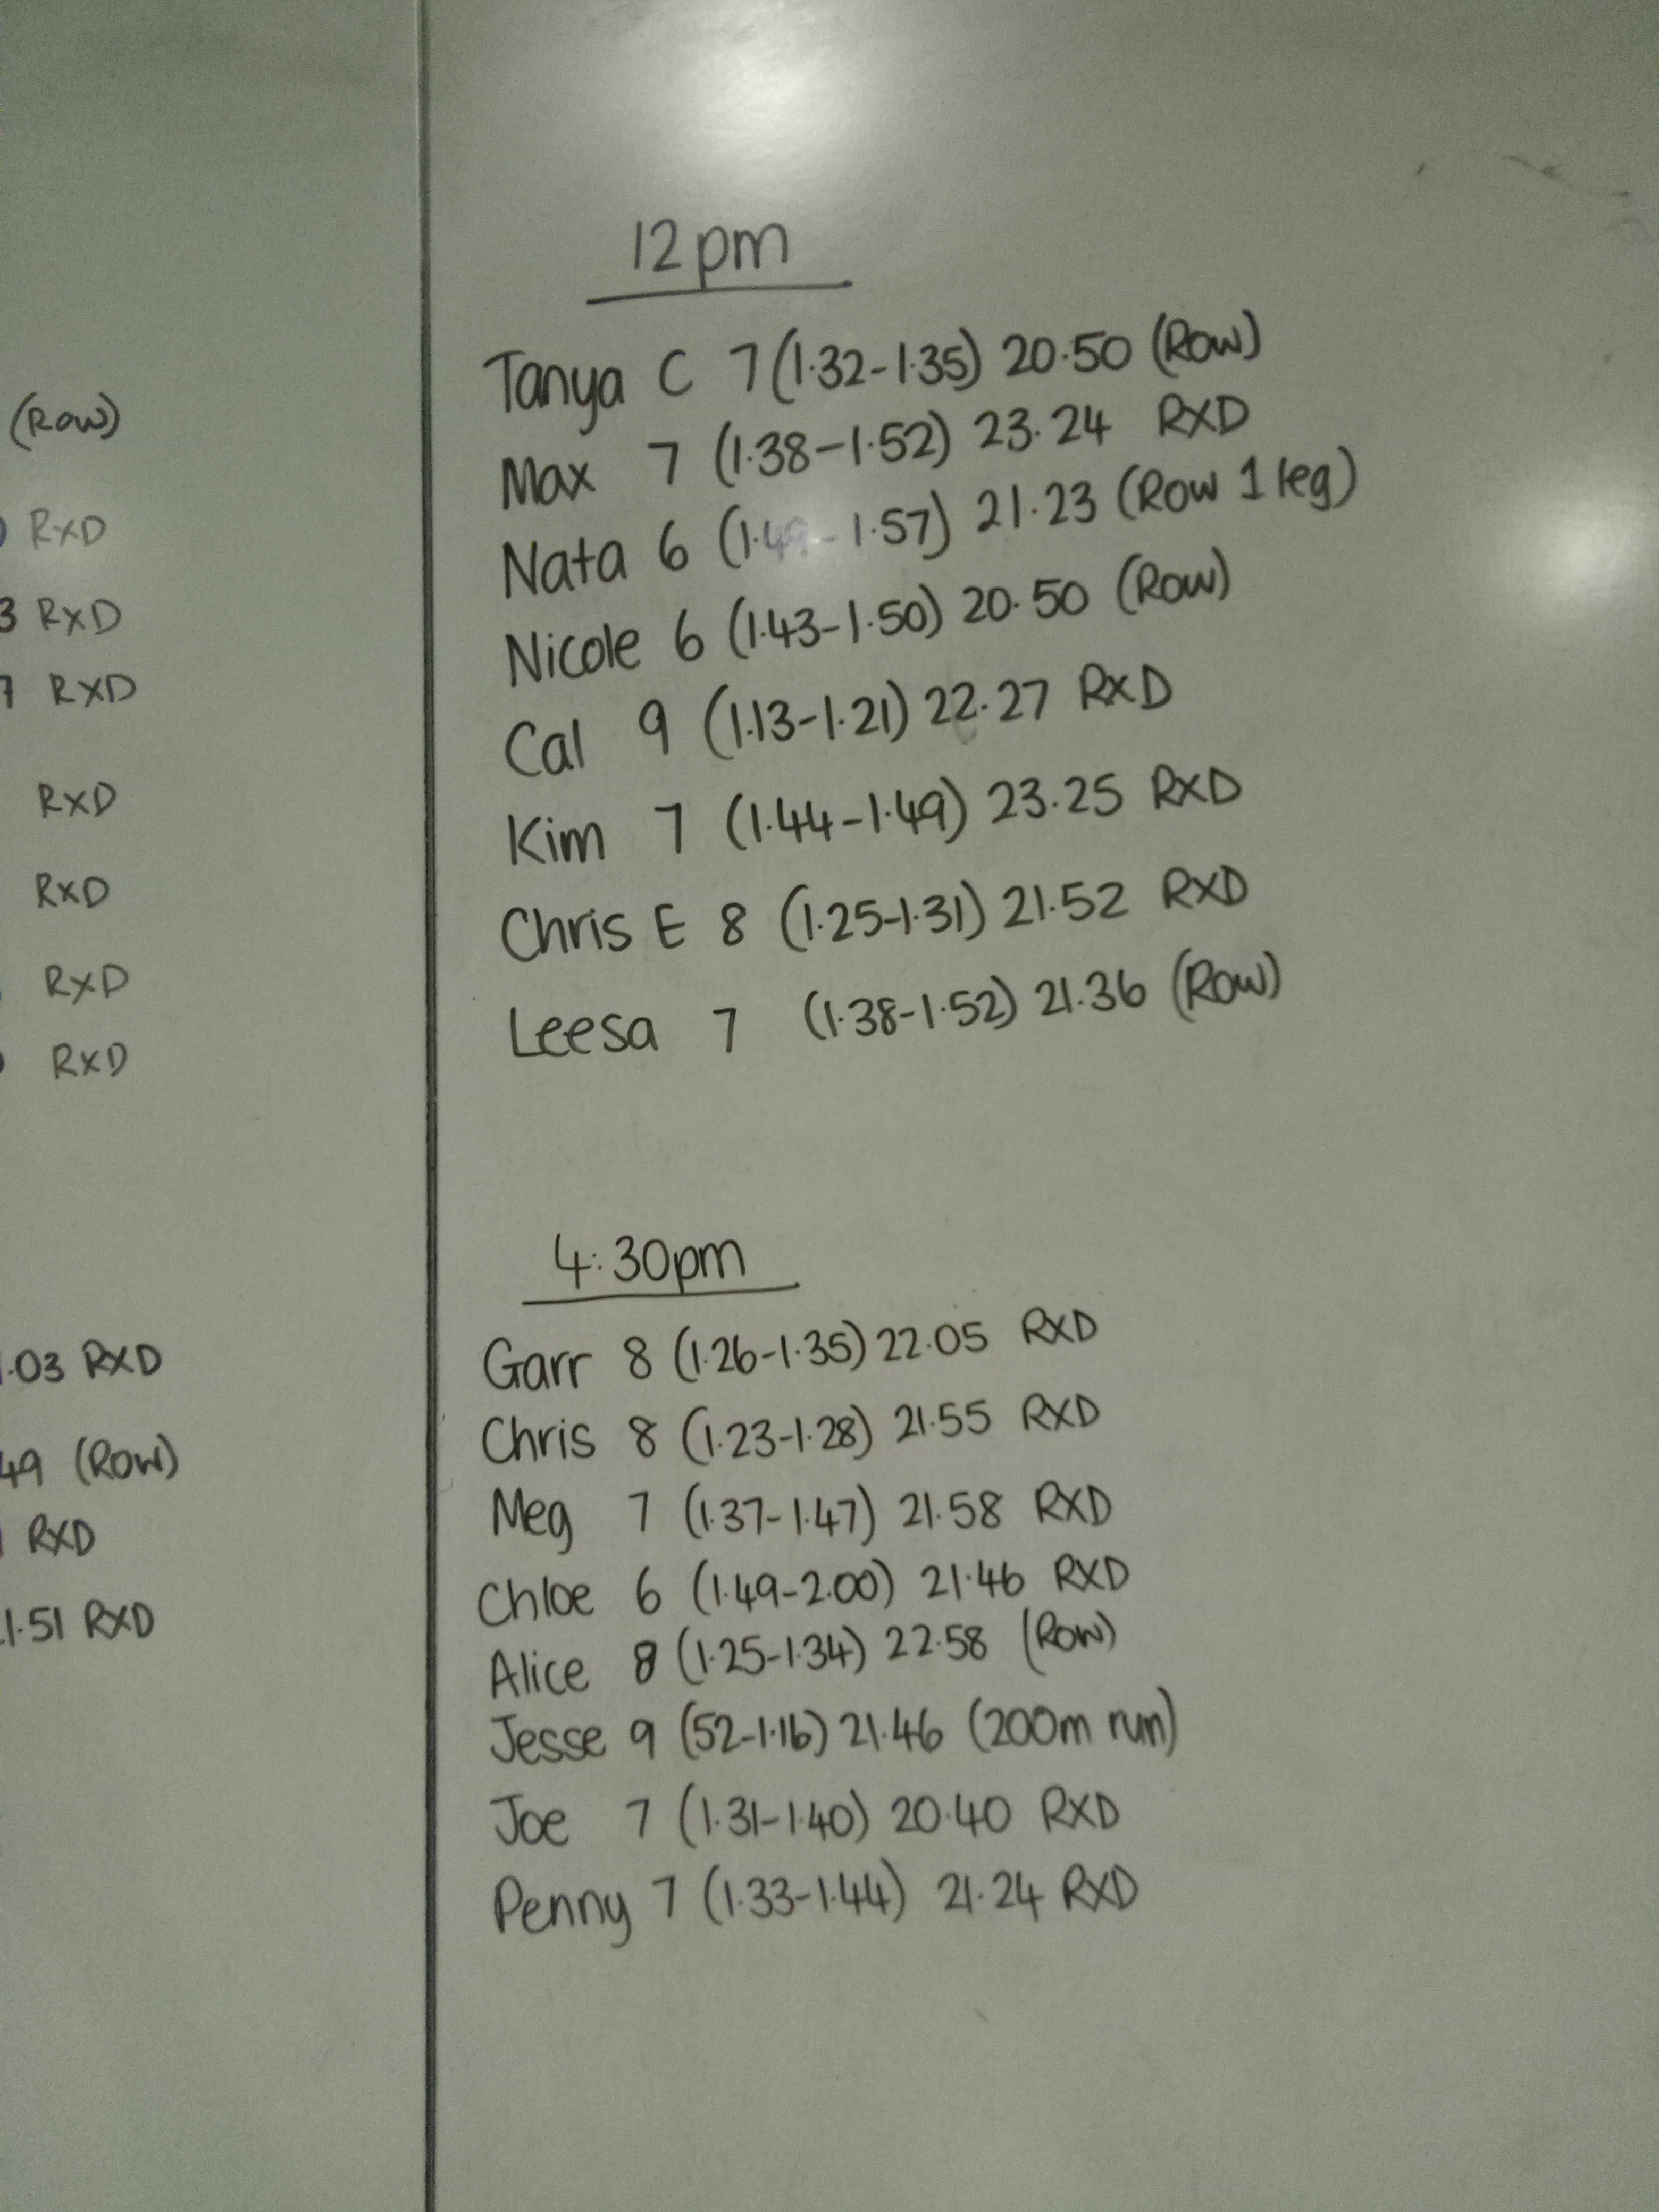 (Row)
RXD
3 RXD
7 RXD
RXD
RXD
RXD
RXD
.03 RXD
49 (Row)
RXD
1.51 RXD
12pm
Tanya C 7 (1.32-1.35) 20.50 (Row)
Max 7 (1.38-1.52) 23.24 RXD
Nata 6 (1.49-1.57) 21.23 (Row 1 leg)
Nicole 6 (1.43-1.50) 20.50 (Row)
Cal 9 (1.13-1.21) 22.27 RXD
Kim 7 (1.44-1.49) 23.25 RXD
Chris E 8 (1.25-1.31) 21.52 RXD
Leesa 7 (1.38-1.52) 21.36 (Row)
4:30pm
Garr 8 (1.26-1.35) 22.05 RXD
Chris 8 (1.23-1.28) 21.55 RXD
Meg 7 (1.37-1.47) 21.58 RXD
Chloe 6 (1.49-2.00) 21.46 RXD
Alice 8 (1.25-1.34) 22.58 (Row)
Jesse 9 (52-1.16) 21.46 (200m run)
Joe 7 (1.31-1.40) 20.40 RXD
Penny 7 (1.33-1.44) 21.24 RXD